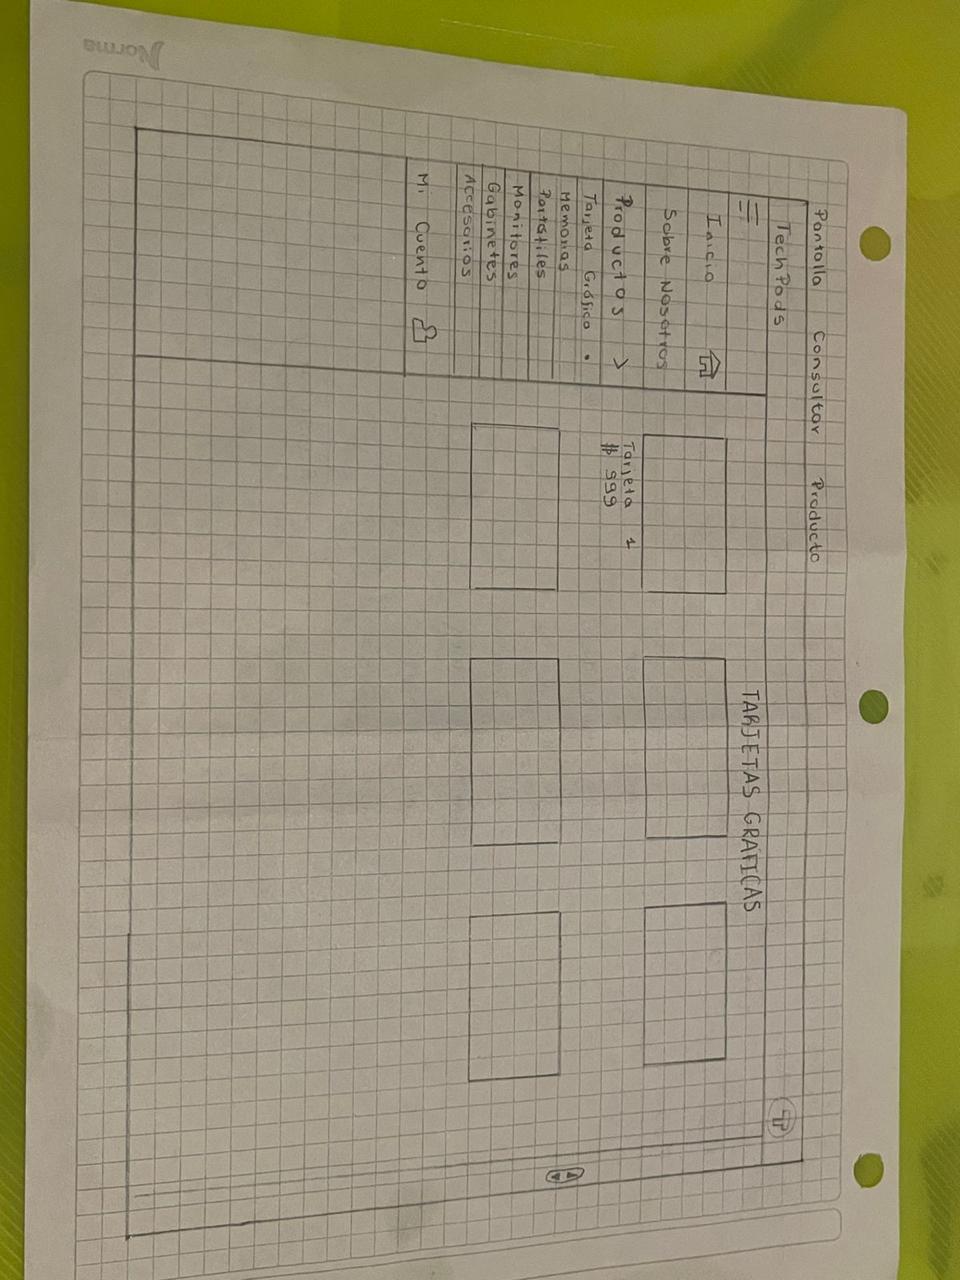 Pantalla Consultar Producto
TechPods
TP
Inicio
Sobre Nosotros
Productos >
Tarjeta Gráfica •
Memorias
Portatiles
Monitores
Gabinetes
Accesorios
Mi Cuenta
TARJETAS GRAFICAS
Tarjeta 1
$ 999
Norma